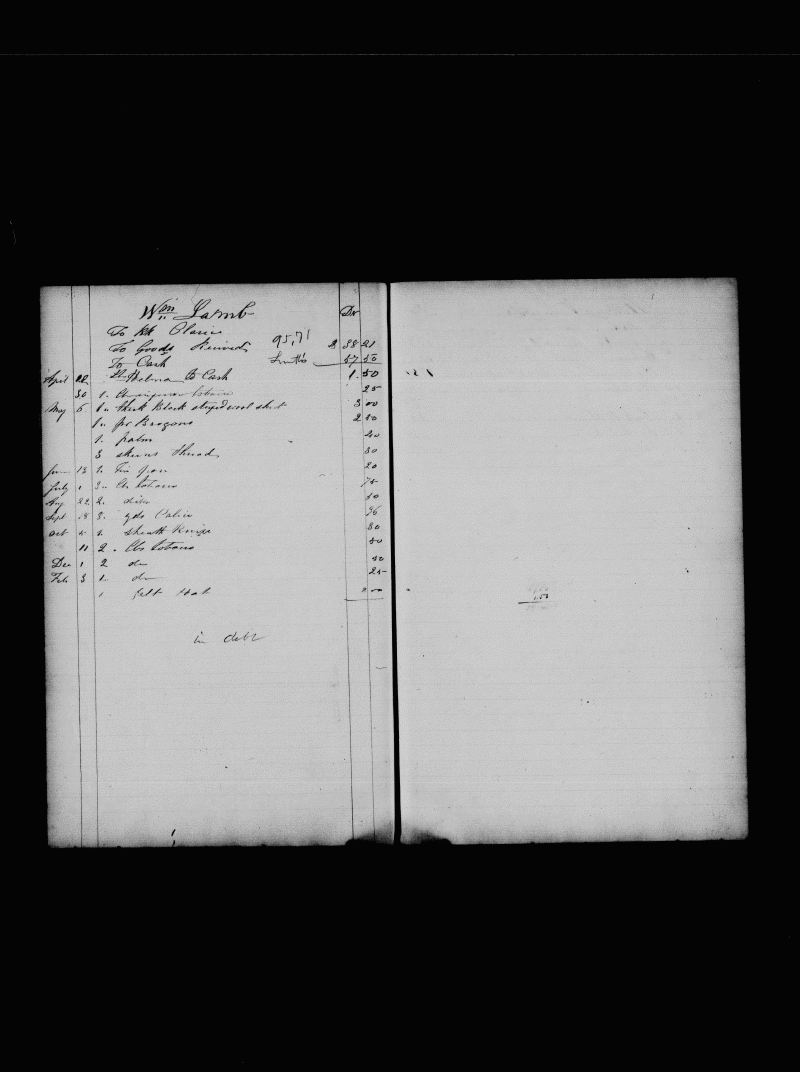 Wm Lamb Dr
To
To Goods Received 95,71 38 21
To Cash 57 50
April 22 St Helena To Cash 1.50
30 1. 25
May 5 1 Thick Black striped wool shirt 3 00
1 pr Brogans 2
1. palm
3 skeins Thread 30
13 1. Tin 20
July 1 3 lbs tobacco 75
Aug 22 2. ditto 50
Sept 18 8. yds Calico 96
Oct 5 1. Sheath Knife 50
11 2. lbs tobacco 50
Dec 1 2 do 50
Feb 3 1. do 25
1 felt Hat 00
in debt